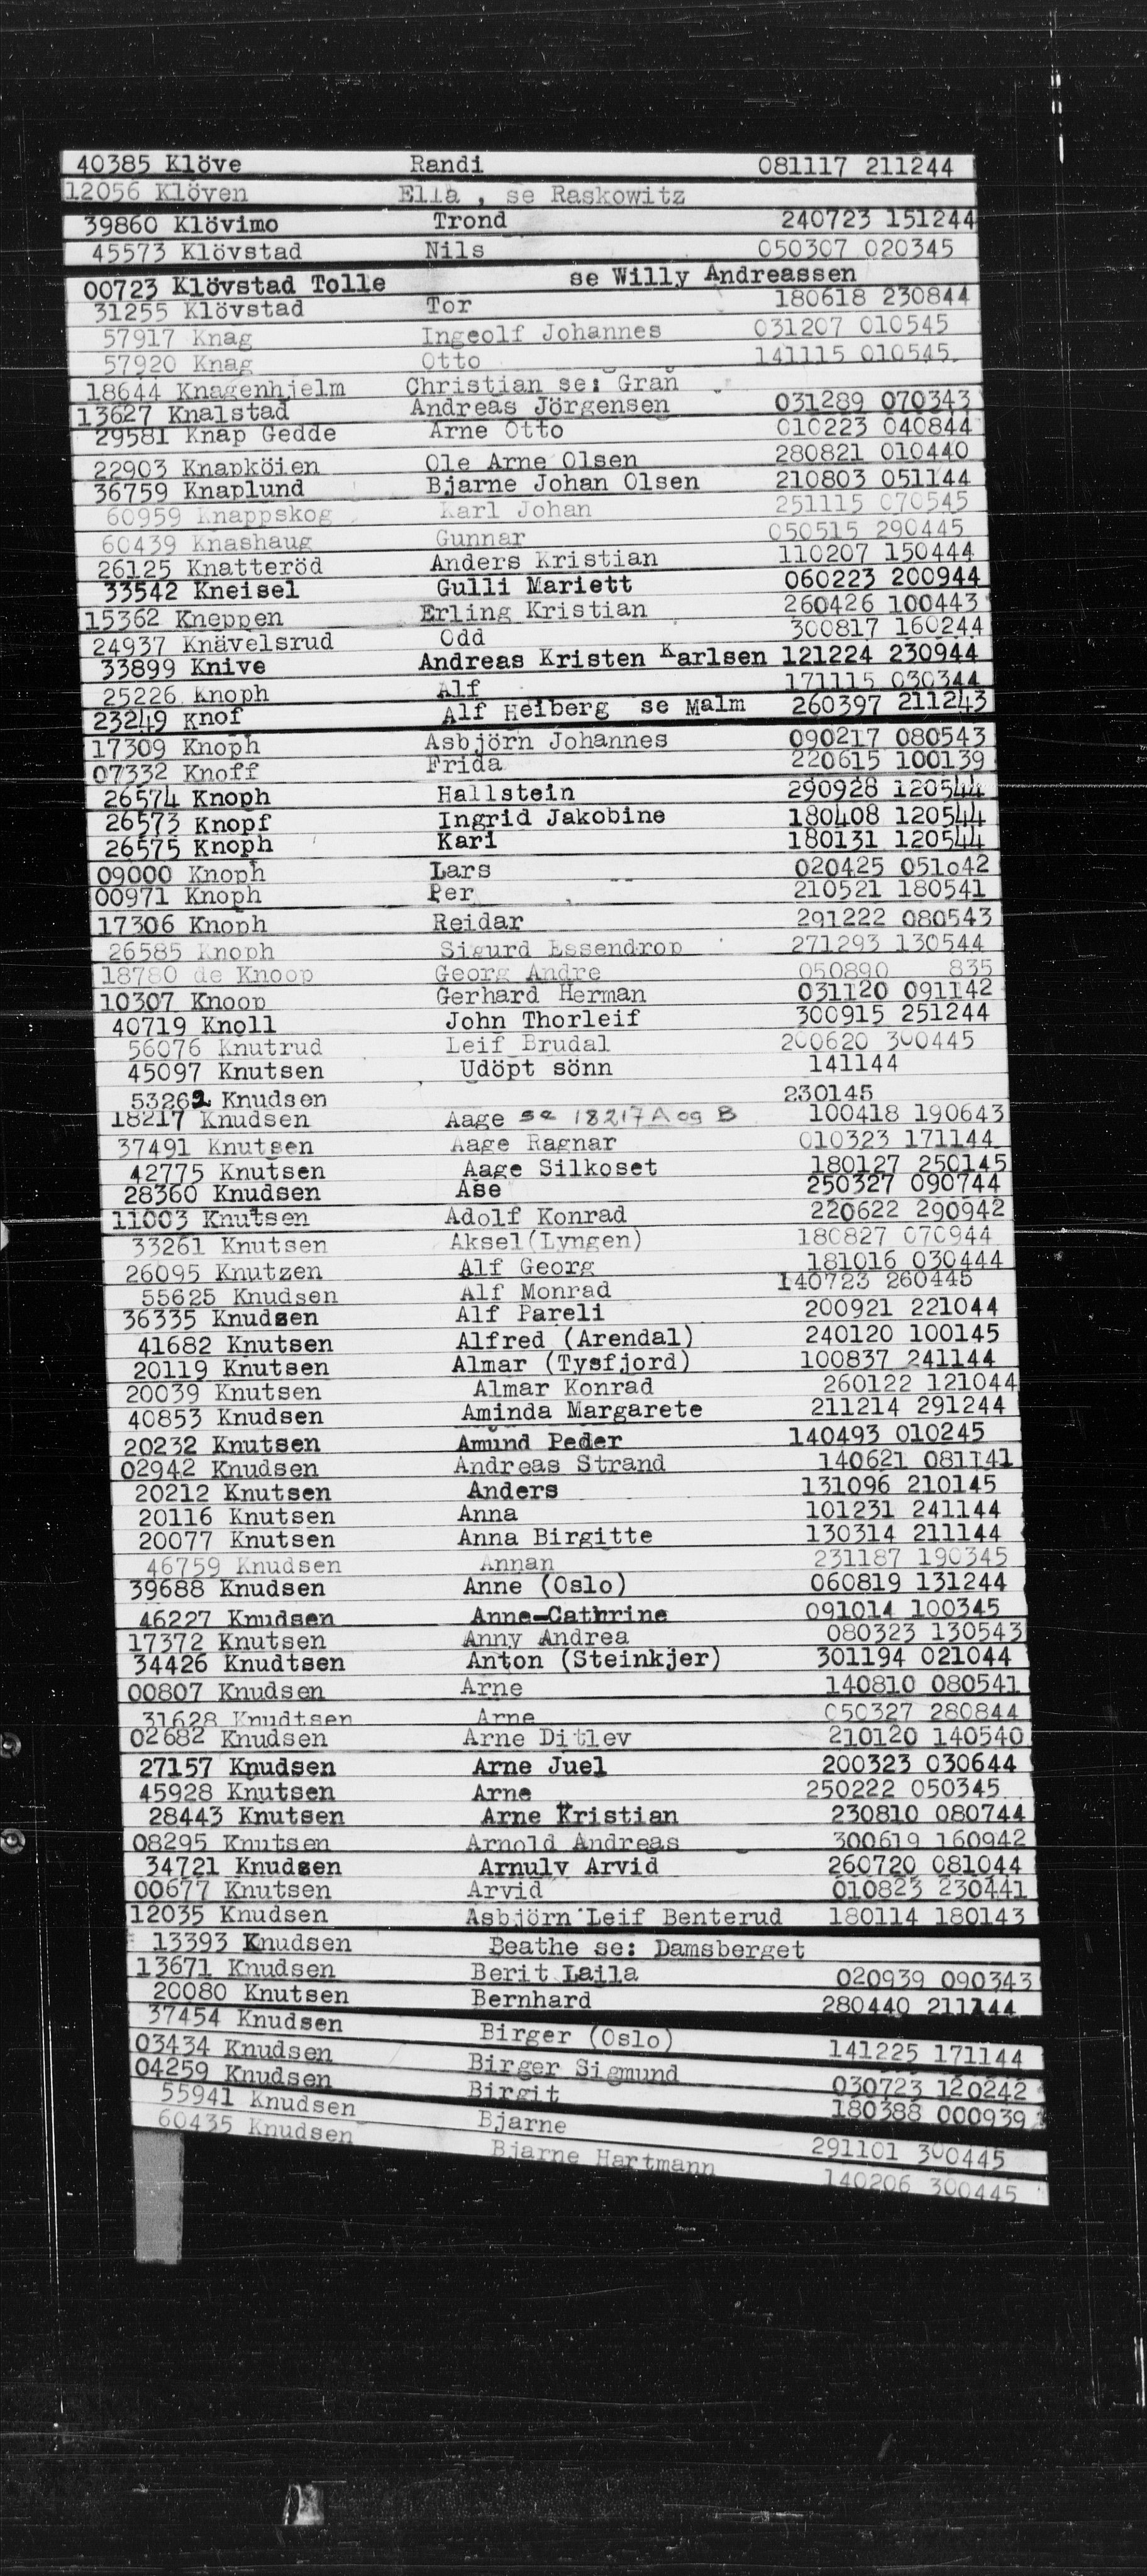 40385 Klöve Randi 081117 211244
12056 Klöven Ella , se Raskowitz
39860 Klövimo Trond 240723 151244
45573 Klövstad Nils 050307 020345
00723 Klövstad Tolle se Willy Andreassen
31255 Klövstad Tor 180618 230844
57917 Knag Ingeolf Johannes 031207 010545
57920 Knag Otto 141115 010545.
18644 Knagenhjelm Christian se: Gran
13627 Knalstad Andreas Jörgensen 031289 070343
29581 Knap Gedde Arne Otto 010223 040844
22903 Knapköien Ole Arne Olsen 280821 010440
36759 Knaplund Bjarne Johan Olsen 210803 051144
60959 Knappskog Karl Johan 251115 070545
60439 Knashaug Gunnar 050515 290445
26125 Knatteröd Anders Kristian 110207 150444
33542 Kneisel Gulli Mariett 060223 200944
15362 Kneppen Erling Kristian 260426 100443
24937 Knävelsrud Odd 300817 160244
33899 Knive Andreas Kristen Karlsen 121224 230944
25226 Knoph Alf 171115 030344
23249 Knof Alf Heiberg se Malm 260397 211243
17309 Knoph Asbjörn Johannes 090217 080543
07332 Knoff Frida 220615 100139
26574 Knoph Hallstein 290928 120544
26573 Knopf Ingrid Jakobine 180408 120544
26575 Knoph Karl 180131 120544
09000 Knoph Lars 020425 051042
00971 Knoph Per 210521 180541
17306 Knoph Reidar 291222 080543
26585 Knoph Sigurd Essendrop 271293 130544
18780 de Knoop Georg Andre 050890 835
10307 Knoop Gerhard Herman 031120 091142
40719 Knoll John Thorleif 300915 251244
56076 Knutrud Leif Brudal 200620 300445
45097 Knutsen Udöpt sönn 141144
53262 Knudsen 230145
18217 Knudsen Aage se 18217 A og B 100418 190643
37491 Knutsen Aage Ragnar 010323 171144
42775 Knutsen Aage Silkoset 180127 250145
28360 Knudsen Ase 250327 090744
11003 Knutsen Adolf Konrad 220622 290942
33261 Knutsen Aksel (Lyngen) 180827 070944
26095 Knutzen Alf Georg 181016 030444
55625 Knudsen Alf Monrad 140723 260445
36335 Knudsen Alf Pareli 200921 221044
41682 Knutsen Alfred (Arendal) 240120 100145
20119 Knutsen Almar (Tysfjord) 100837 241144
20039 Knutsen Almar Konrad 260122 121044
40853 Knudsen Aminda Margarete 211214 291244
20232 Knutsen Amund Peder 140493 010245
02942 Knudsen Andreas Strand 140621 081141
20212 Knutsen Anders 131096 210145
20116 Knutsen Anna 101231 241144
20077 Knutsen Anna Birgitte 130314 211144
46759 Knudsen Annan 231187 190345
39688 Knudsen Anne (Oslo) 060819 131244
46227 Knudsen Anne-Cathrine 091014 100345
17372 Knutsen Anny Andrea 080323 130543
34426 Knudtsen Anton (Steinkjer) 301194 021044
00807 Knudsen Arne 140810 080541
31628 Knudtsen Arne 050327 280844
02682 Knudsen Arne Ditlev 210120 140540
27157 Knudsen Arne Juel 200323 030644
45928 Knutsen Arne 250222 050345
28443 Knutsen Arne Kristian 230810 080744
08295 Knutsen Arnold Andreas 300619 160942
34721 Knudsen Arnulv Arvid 260720 081044
00677 Knutsen Arvid 010823 230441
12035 Knudsen Asbjörn Leif Benterud 180114 180143
13393 Knudsen Beathe se: Damsberget
13671 Knudsen Berit Laila 020939 090343
20080 Knutsen Bernhard 280440 211144
37454 Knudsen Birger (Oslo) 141225 171144
03434 Knudsen Birger Sigmund 030723 120242
04259 Knudsen Birgit 180388 000939
55941 Knudsen Bjarne 291101 300445
60435 Knudsen Bjarne Hartmann 140206 300445